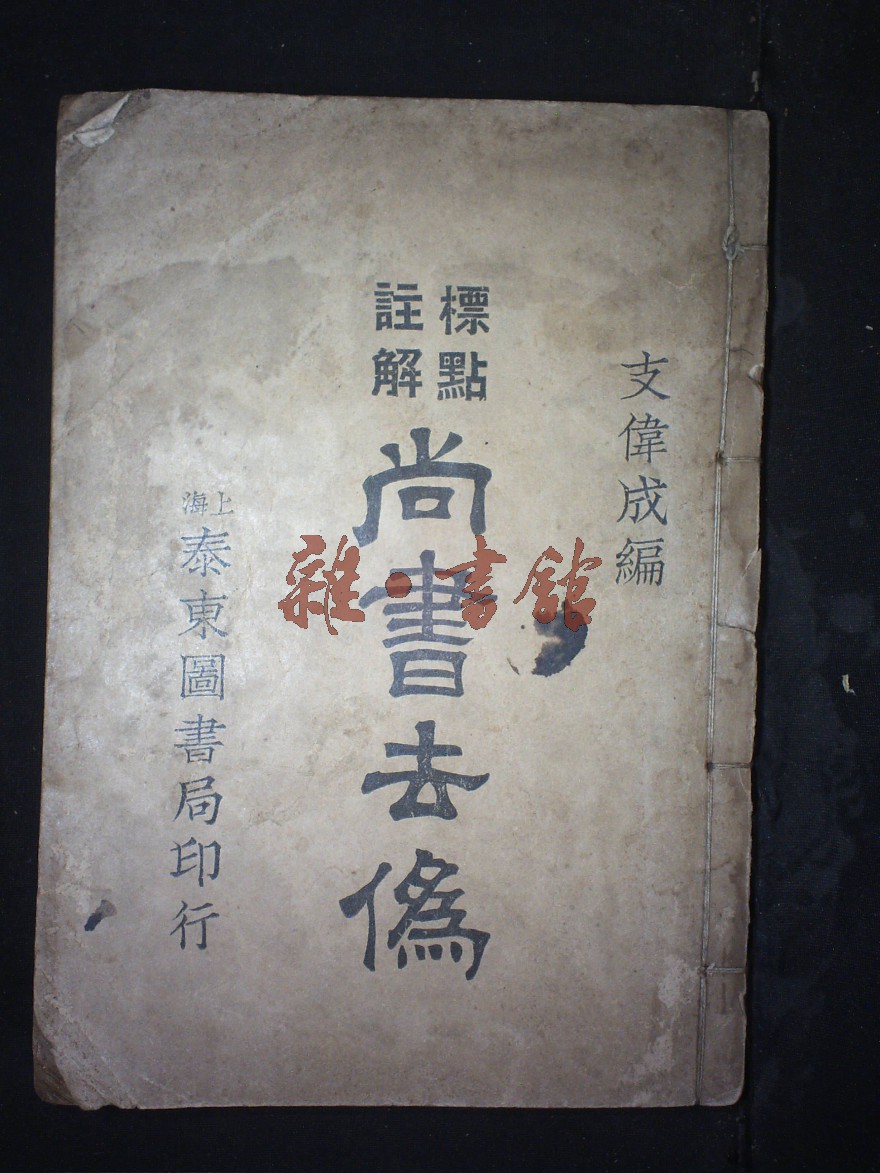 支偉成編
標點
註解
尚書去僞
上海
泰東圖書局印行
雜·書館